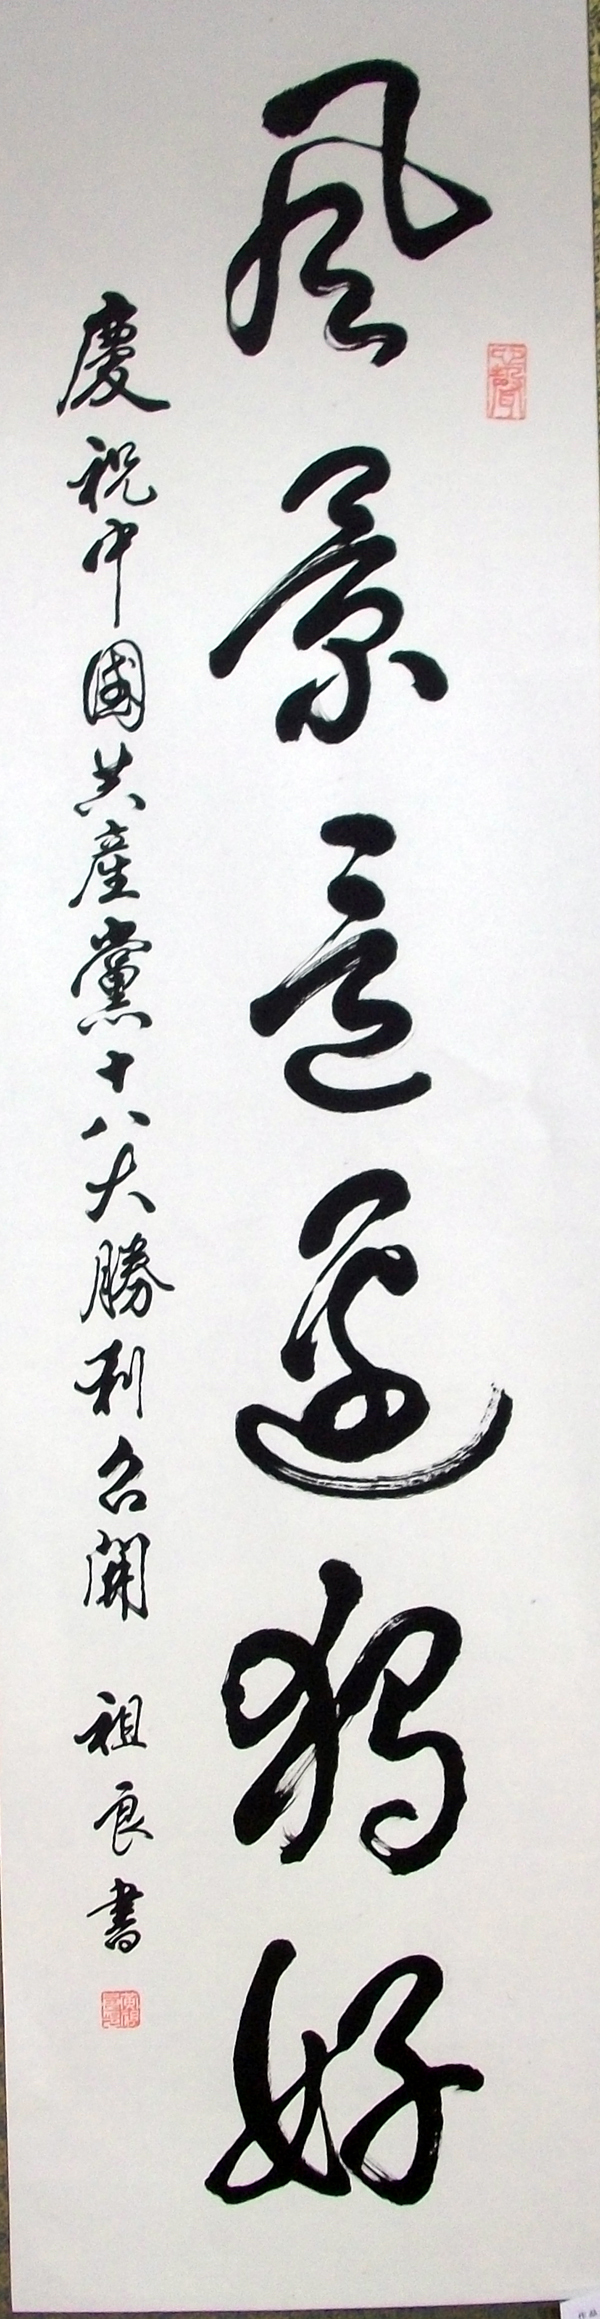 風景這邊獨好
慶祝中國共產黨十八大勝利召開 祖良書